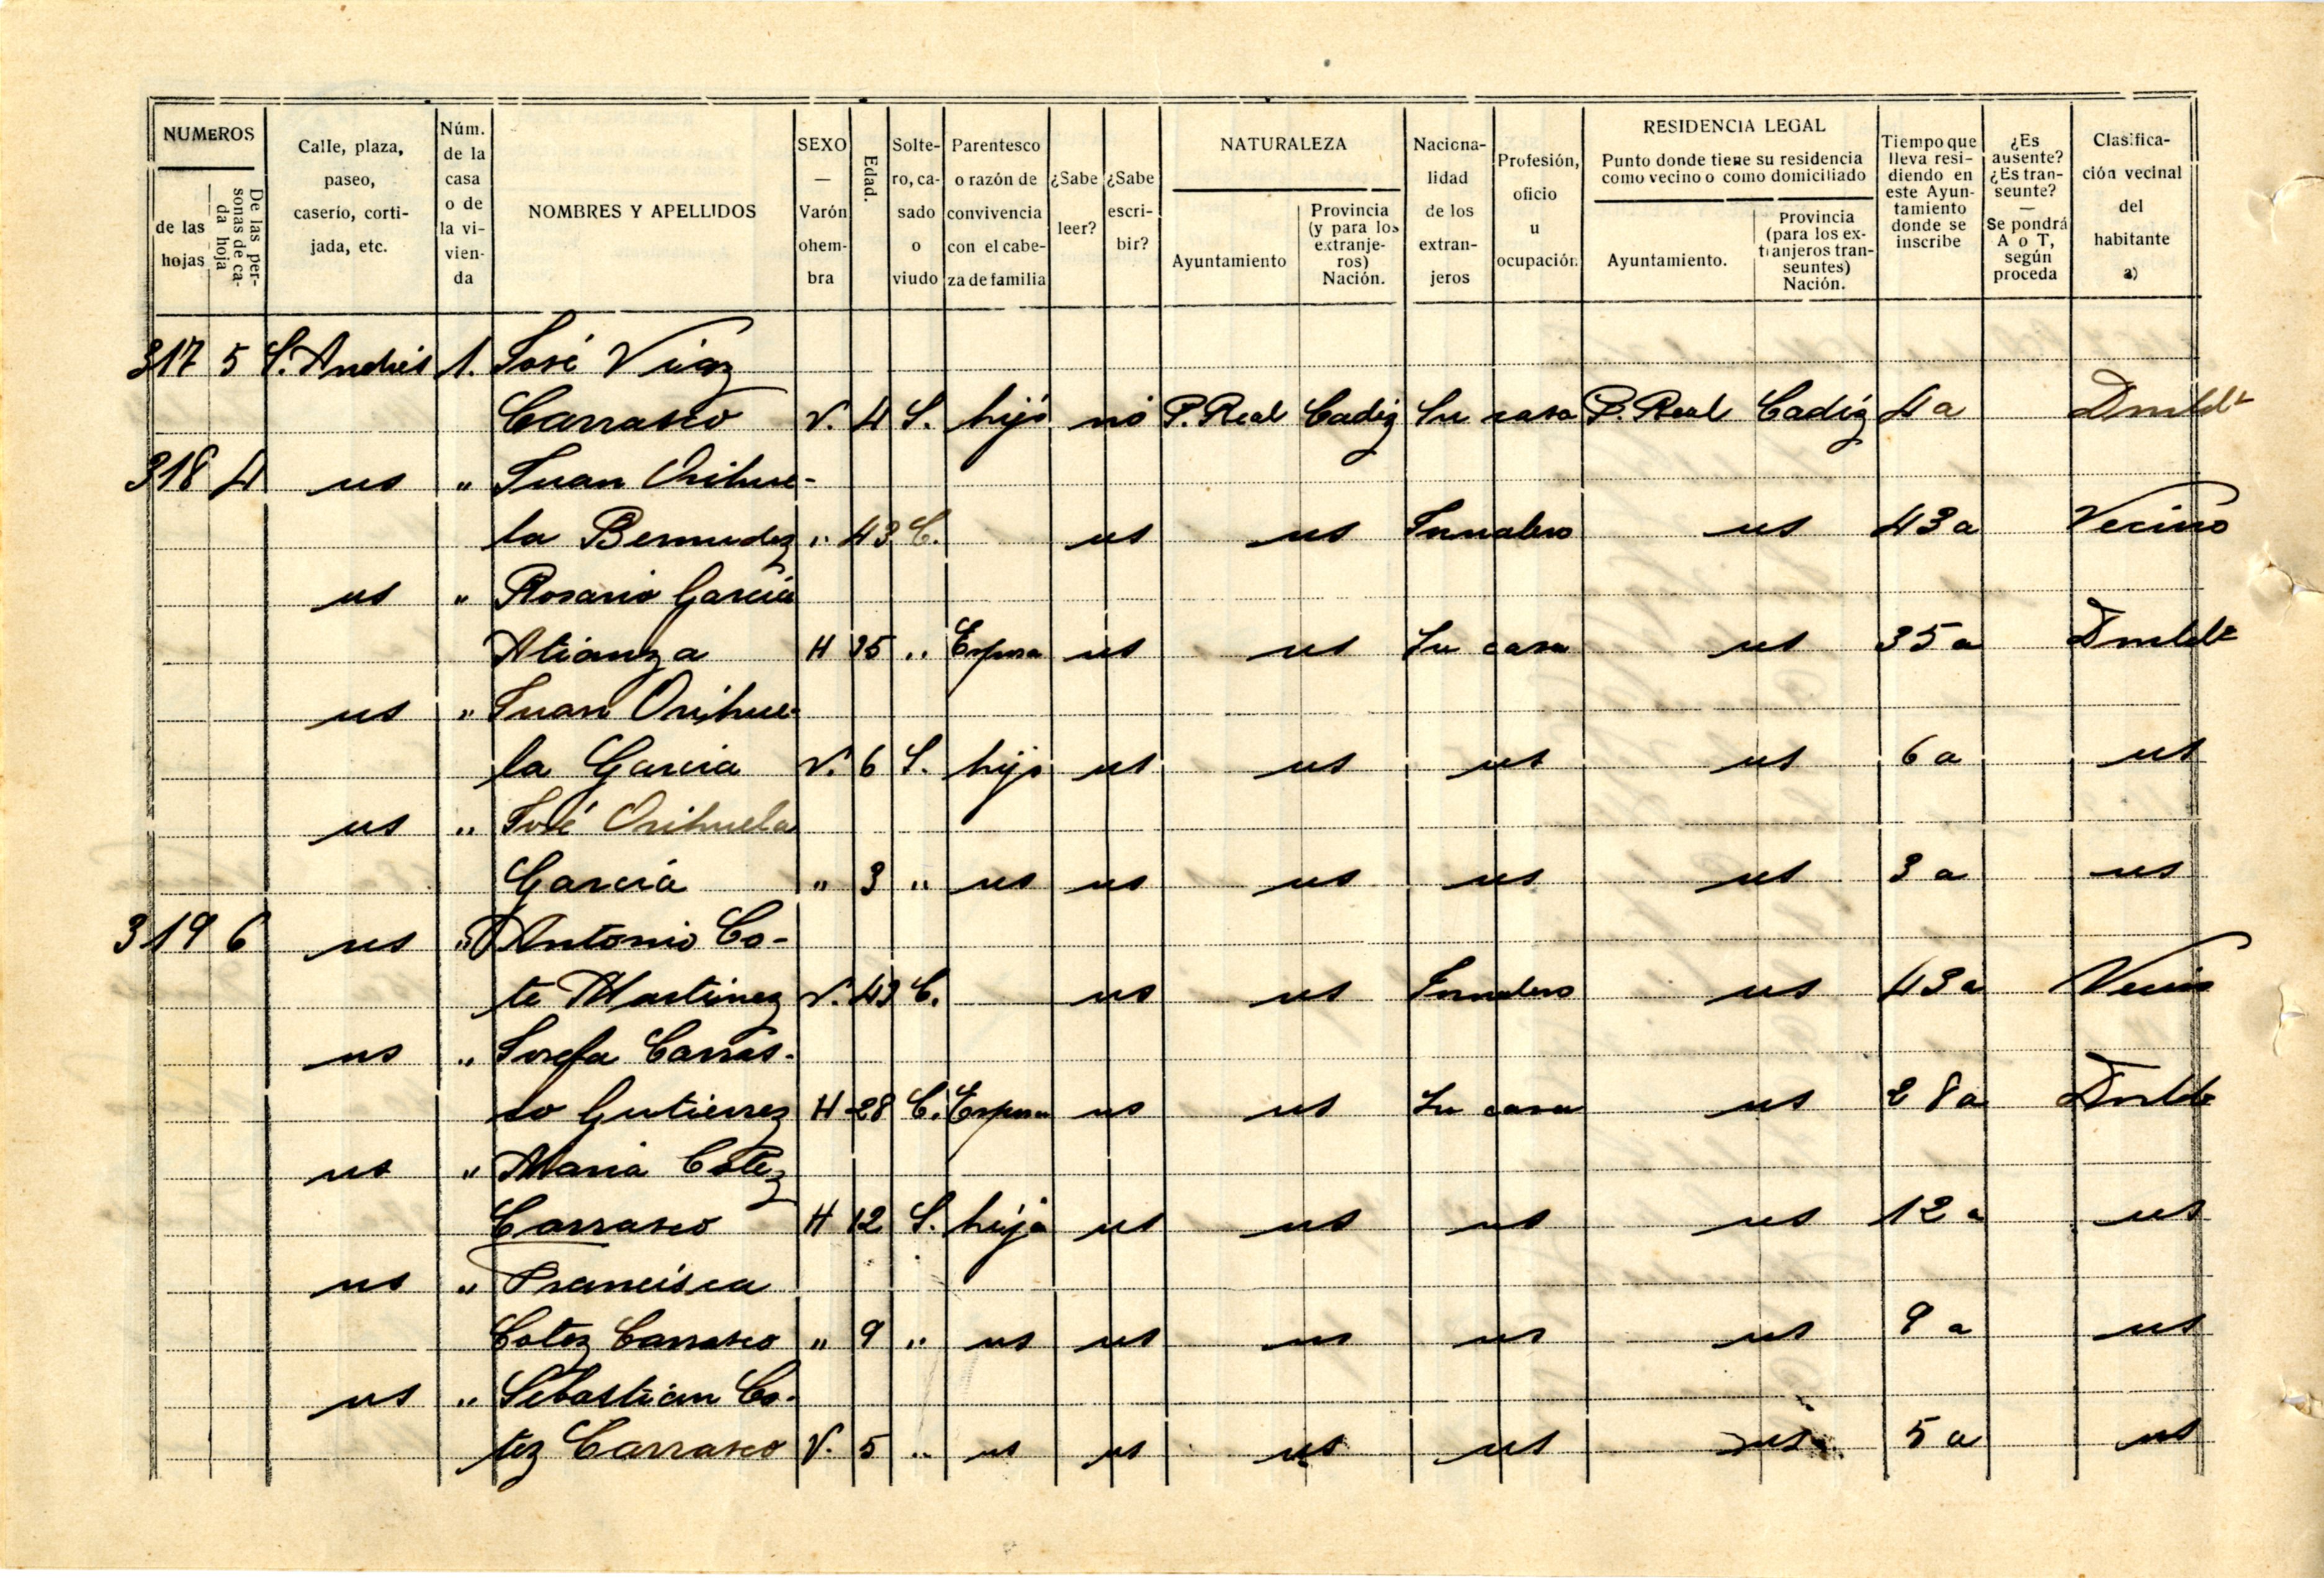 NUMEROS
de las hojas
De las personas de cada hoja
Calle, plaza, paseo, caserío, cortijada, etc.
Núm. de la casa o de la vivienda
NOMBRES Y APELLIDOS
SEXO — Varón o hembra
Edad.
Soltero, casado o viudo
Parentesco o razón de convivencia con el cabeza de familia
¿Sabe leer?
¿Sabe escribir?
NATURALEZA
Ayuntamiento
Provincia (y para los extranjeros) Nación.
Nacionalidad de los extranjeros
Profesión, oficio u ocupación
RESIDENCIA LEGAL
Punto donde tiene su residencia como vecino o como domiciliado
Ayuntamiento.
Provincia (para los extranjeros transeuntes) Nación.
Tiempo que lleva residiendo en este Ayuntamiento donde se inscribe
¿Es ausente? ¿Es transeunte? — Se pondrá A o T, según proceda
Clasificación vecinal del habitante a)
317 5 S. Andrés 1. José
Carrasco V. 4 S. hijo no P. Real Cadiz Su casa P. Real Cadiz 4 a
318 4 us " Juan Orihue-
la Bermudez " 43 C. us us Jornalero us 43 a Vecino
us " Rosario Garcia
Atianza H 35 " Esposa us us Su casa us 35 a
us " Juan Orihue-
la Garcia V. 6 S. hijo us us us us 6 a us
us " José Orihuela
Garcia " 3 " us us us us us 3 a us
319 6 us " Antonio Co-
te Martinez V. 43 C. us us Jornalero us 43 a Vecino
us " Josefa Carras-
co Gutierrez H 28 C. Esposa us us Su casa us 28 a
us " Maria Cotez
Carrasco H 12 S. hija us us us us 12 a us
us " Francisca
Cotez Carrasco " 9 " us us us us us 9 a us
us " Sebastian Co-
tez Carrasco V. 5 " us us us us us 5 a us